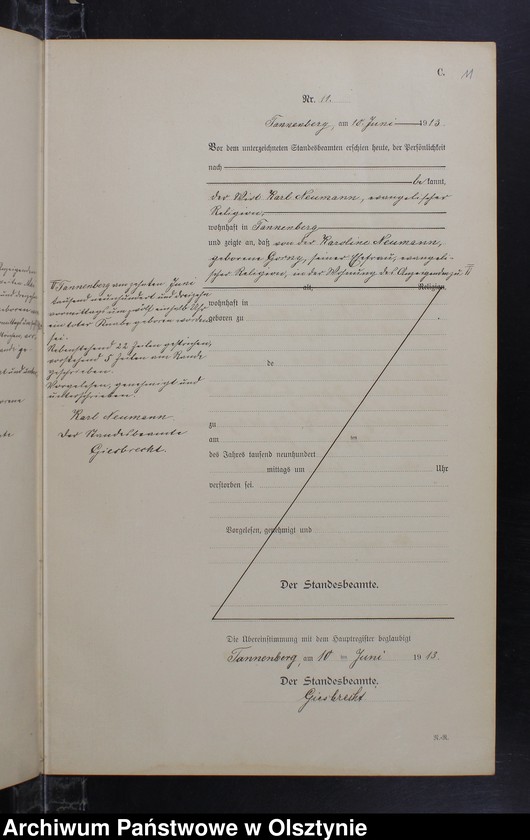 C. 11
Nr. 11.
Tannenberg, am 10 Juni 1913.
Vor dem unterzeichneten Standesbeamten erschien heute, der Persönlichkeit
nach
bekannt,
der Wirt Karl Neumann, evangelischer
Religion,
wohnhaft in Tannenberg
und zeigte an, daß von der Karoline Neumann,
geborene Gorny, seiner Ehefrau, evangeli-
scher Religion, in der Wohnung des Anzeigenden zu
alt, Religion,
wohnhaft in
geboren zu
de
zu
am ten
des Jahres tausend neunhundert
mittags um Uhr
verstorben sei.
Vorgelesen, genehmigt und
Der Standesbeamte.
Tannenberg am zehnten Juni
tausend neunhundert und dreizehn
vormittags um zwölf einhalb Uhr
ein toter Knabe geboren worden
sei.
Nebenstehend 22 Zeilen gestrichen,
vorstehend 5 Zeilen am Rande
geschrieben.
Vorgelesen, genehmigt und
unterschrieben
Karl Neumann
Der Standesbeamte
Giesbrecht.
Die Übereinstimmung mit dem Hauptregister beglaubigt
Tannenberg, am 10 ten Juni 1913.
Der Standesbeamte.
Giesbrecht.
Archiwum Państwowe w Olsztynie